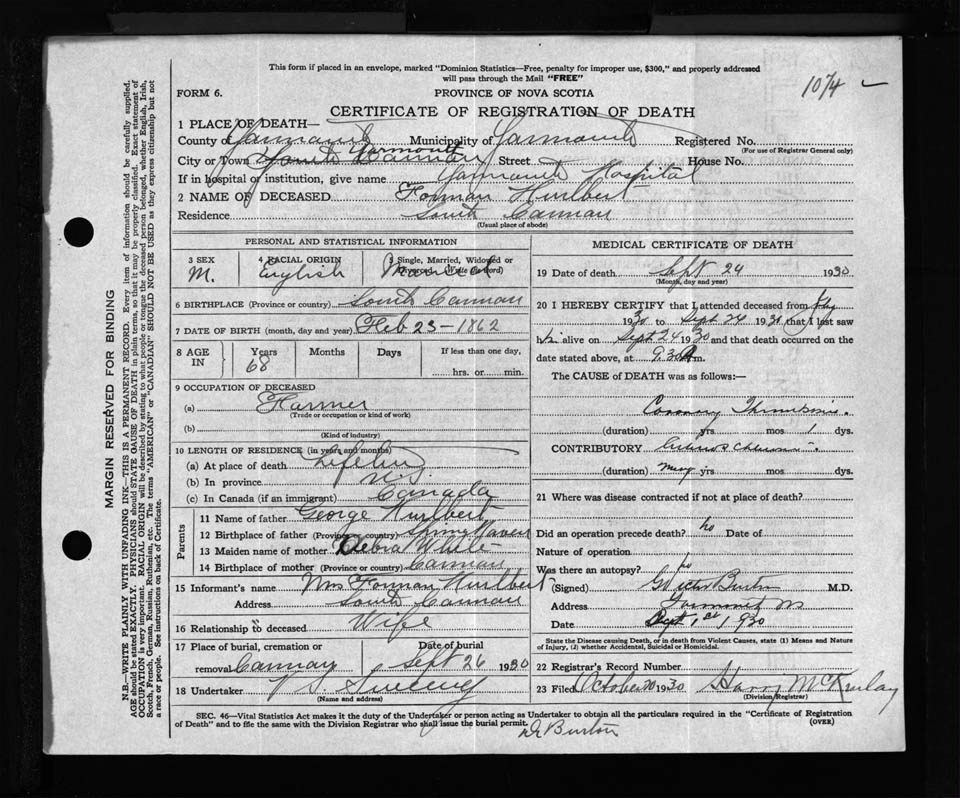 This form if placed in an envelope, marked "Dominion Statistics—Free, penalty for improper use, $300," and properly addressed
will pass through the Mail "FREE"
1074
FORM 6.
PROVINCE OF NOVA SCOTIA
CERTIFICATE OF REGISTRATION OF DEATH
1 PLACE OF DEATH—
County of Yarmouth Municipality of Yarmouth Registered No.
(For use of Registrar General only)
City or Town Yarmouth South Canaan Street House No.
If in hospital or institution, give name Yarmouth Hospital
2 NAME OF DECEASED Forman Hurlbert
Residence South Canaan
(Usual place of abode)
PERSONAL AND STATISTICAL INFORMATION
3 SEX M.
4 RACIAL ORIGIN English
5 Single, Married, Widowed or Divorced (Write the word) Married
6 BIRTHPLACE (Province or country) South Canaan
7 DATE OF BIRTH (month, day and year) Feb 23-1862
8 AGE IN Years 68 Months Days If less than one day, hrs. or min.
9 OCCUPATION OF DECEASED
(a) Farmer
(Trade or occupation or kind of work)
(b)
(Kind of industry)
10 LENGTH OF RESIDENCE (in years and months)
(a) At place of death Lifetime
(b) In province N.S.
(c) In Canada (if an immigrant) Canada
Parents
11 Name of father George Hurlbert
12 Birthplace of father (Province or country) Springhaven
13 Maiden name of mother Debra White
14 Birthplace of mother (Province or country) Canaan
15 Informant's name Mrs Forman Hurlbert
Address South Canaan
16 Relationship to deceased Wife
17 Place of burial, cremation or removal Canaan
Date of burial Sept 26 1930
18 Undertaker V S Sweeney
(Name and address)
MEDICAL CERTIFICATE OF DEATH
19 Date of death Sept 24 1930
(Month, day and year)
20 I HEREBY CERTIFY that I attended deceased from July
1930 to Sept 24 1930 that I last saw
him alive on Sept 24 1930 and that death occurred on the
date stated above, at 9.30 A m.
The CAUSE OF DEATH was as follows:—
Coronary Thrombosis.
(duration) yrs mos 1 dys.
CONTRIBUTORY Arteriosclerosis.
(duration) many yrs mos dys.
21 Where was disease contracted if not at place of death?
Did an operation precede death? no Date of
Nature of operation
Was there an autopsy? no
(Signed) G Victor Burton M.D.
Address Yarmouth NS
Date Sept 1st 1930
State the Disease causing Death, or in death from Violent Causes, state (1) Means and Nature
of Injury, (J) whether Accidental, Suicidal or Homicidal.
22 Registrar's Record Number 1
23 Filed October 20 1930 Harry McKinlay
(Division Registrar)
SEC. 46—Vital Statistics Act makes it the duty of the Undertaker or person acting as Undertaker to obtain all the particulars required in the "Certificate of Registration
of Death" and to file the same with the Division Registrar who shall issue the burial permit.
(OVER)
Dr Burton
MARGIN RESERVED FOR BINDING
N.B.—WRITE PLAINLY WITH UNFADING INK—THIS IS A PERMANENT RECORD. Every item of information should be carefully supplied.
AGE should be stated EXACTLY. PHYSICIANS should STATE CAUSE OF DEATH in plain terms, so that it may be properly classified. Exact statement of
OCCUPATION is very important. RACIAL ORIGIN will be described by stating to what people or tongue the deceased person belonged, whether English, Irish,
Scotch, French, German, Russian, Ruthenian, etc. The terms "AMERICAN" or "CANADIAN" SHOULD NOT BE USED as they express citizenship but not
a race or people. See instructions on back of Certificate.